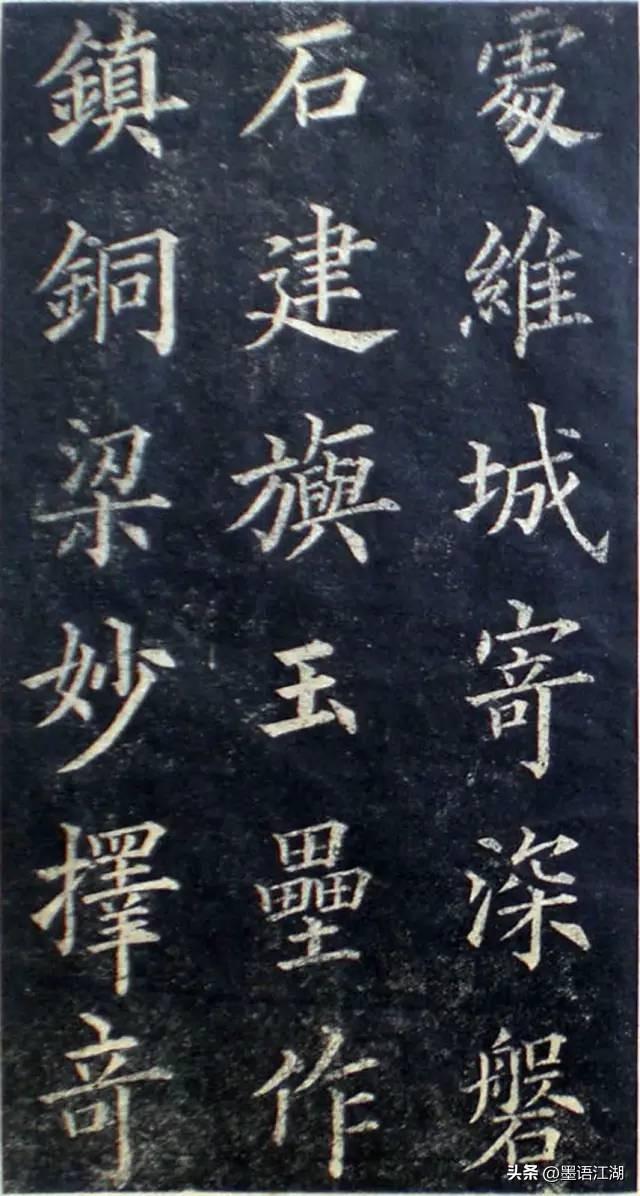 維城寄深磐
石建旟玉壘作
鎮銅梁妙擇竒
头条 @墨语江湖